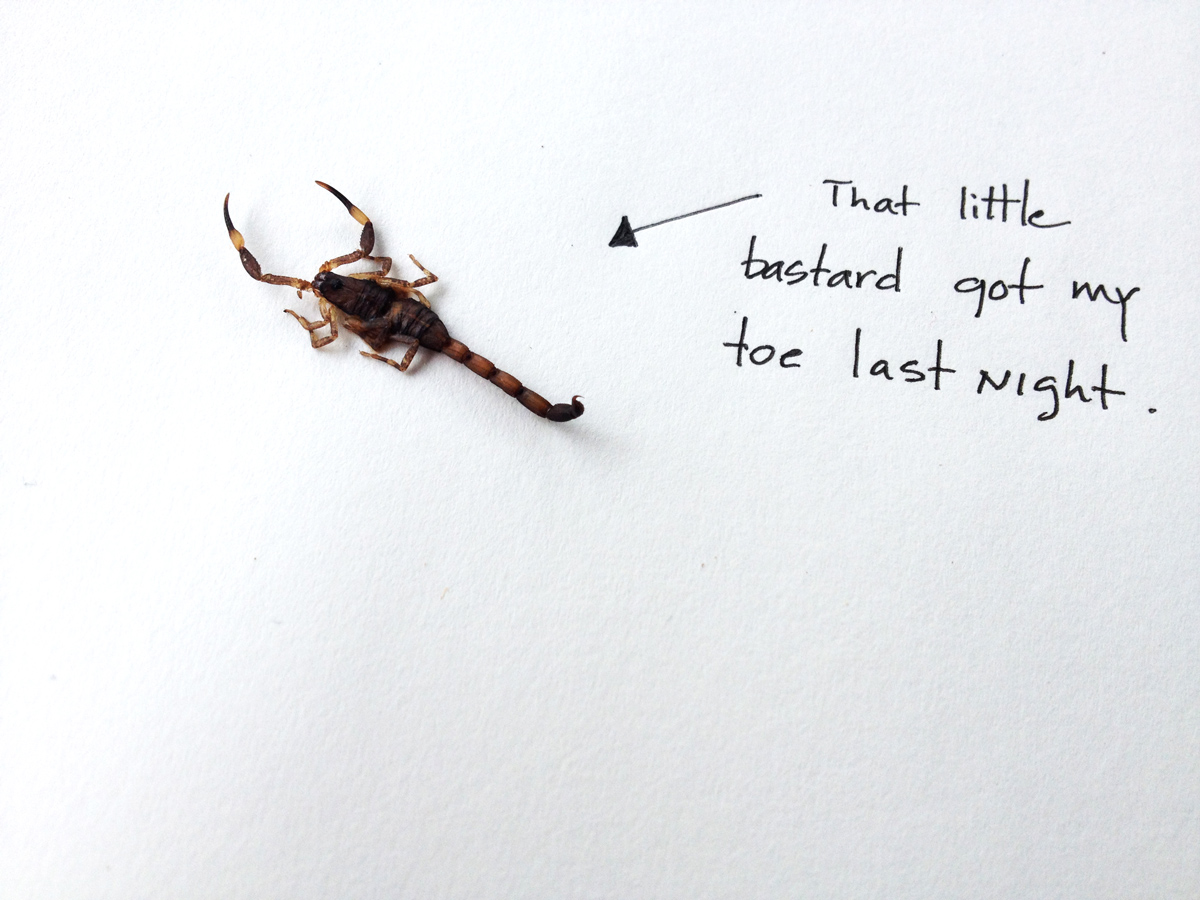 That little
bastard got my
toe last Night.